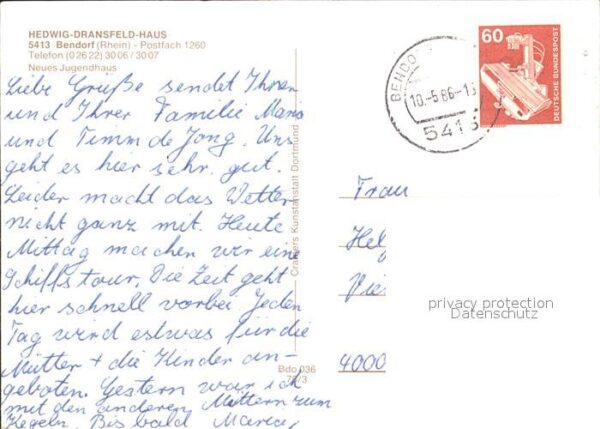 HEDWIG-DRANSFELD-HAUS
5413 Bendorf (Rhein) - Postfach 1260
Telefon (0 26 22) 30 06 / 30 07
Neues Jugendhaus
Liebe Grüße sendet Ihnen
und Ihrer Familie
und Timm de Jong. Uns
geht es hier sehr gut.
Leider macht das Wetter
nicht ganz mit. Heute
Mittag machen wir eine
Schiffstour. Die Zeit geht
hier schnell vorbei. Jeden
Tag wird etwas für die
Mütter + die Kinder an-
geboten. Gestern war ich
mit den anderen Müttern zum
Kegeln. Bis bald
Cramers Kunstanstalt Dortmund
Bdo 036
/3
BENDO
10.-5.86-13
5413
60
DEUTSCHE BUNDESPOST
Frau
Hel
Vie
4000
privacy protection
Datenschutz